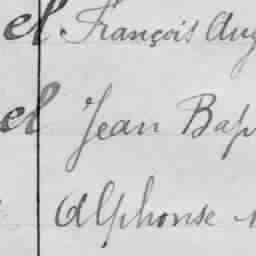 el. François Aug
el Jean Bap
Alphonse